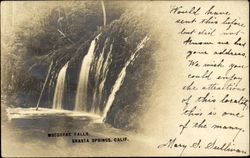 MOSSBRAE FALLS.
SHASTA SPRINGS, CALIF.
Would have
sent this before
but did not
know we had
your address.
We wish you
could enjoy
the attractions
of this locality
this is
one of
the many.
Mary S. Sullivan